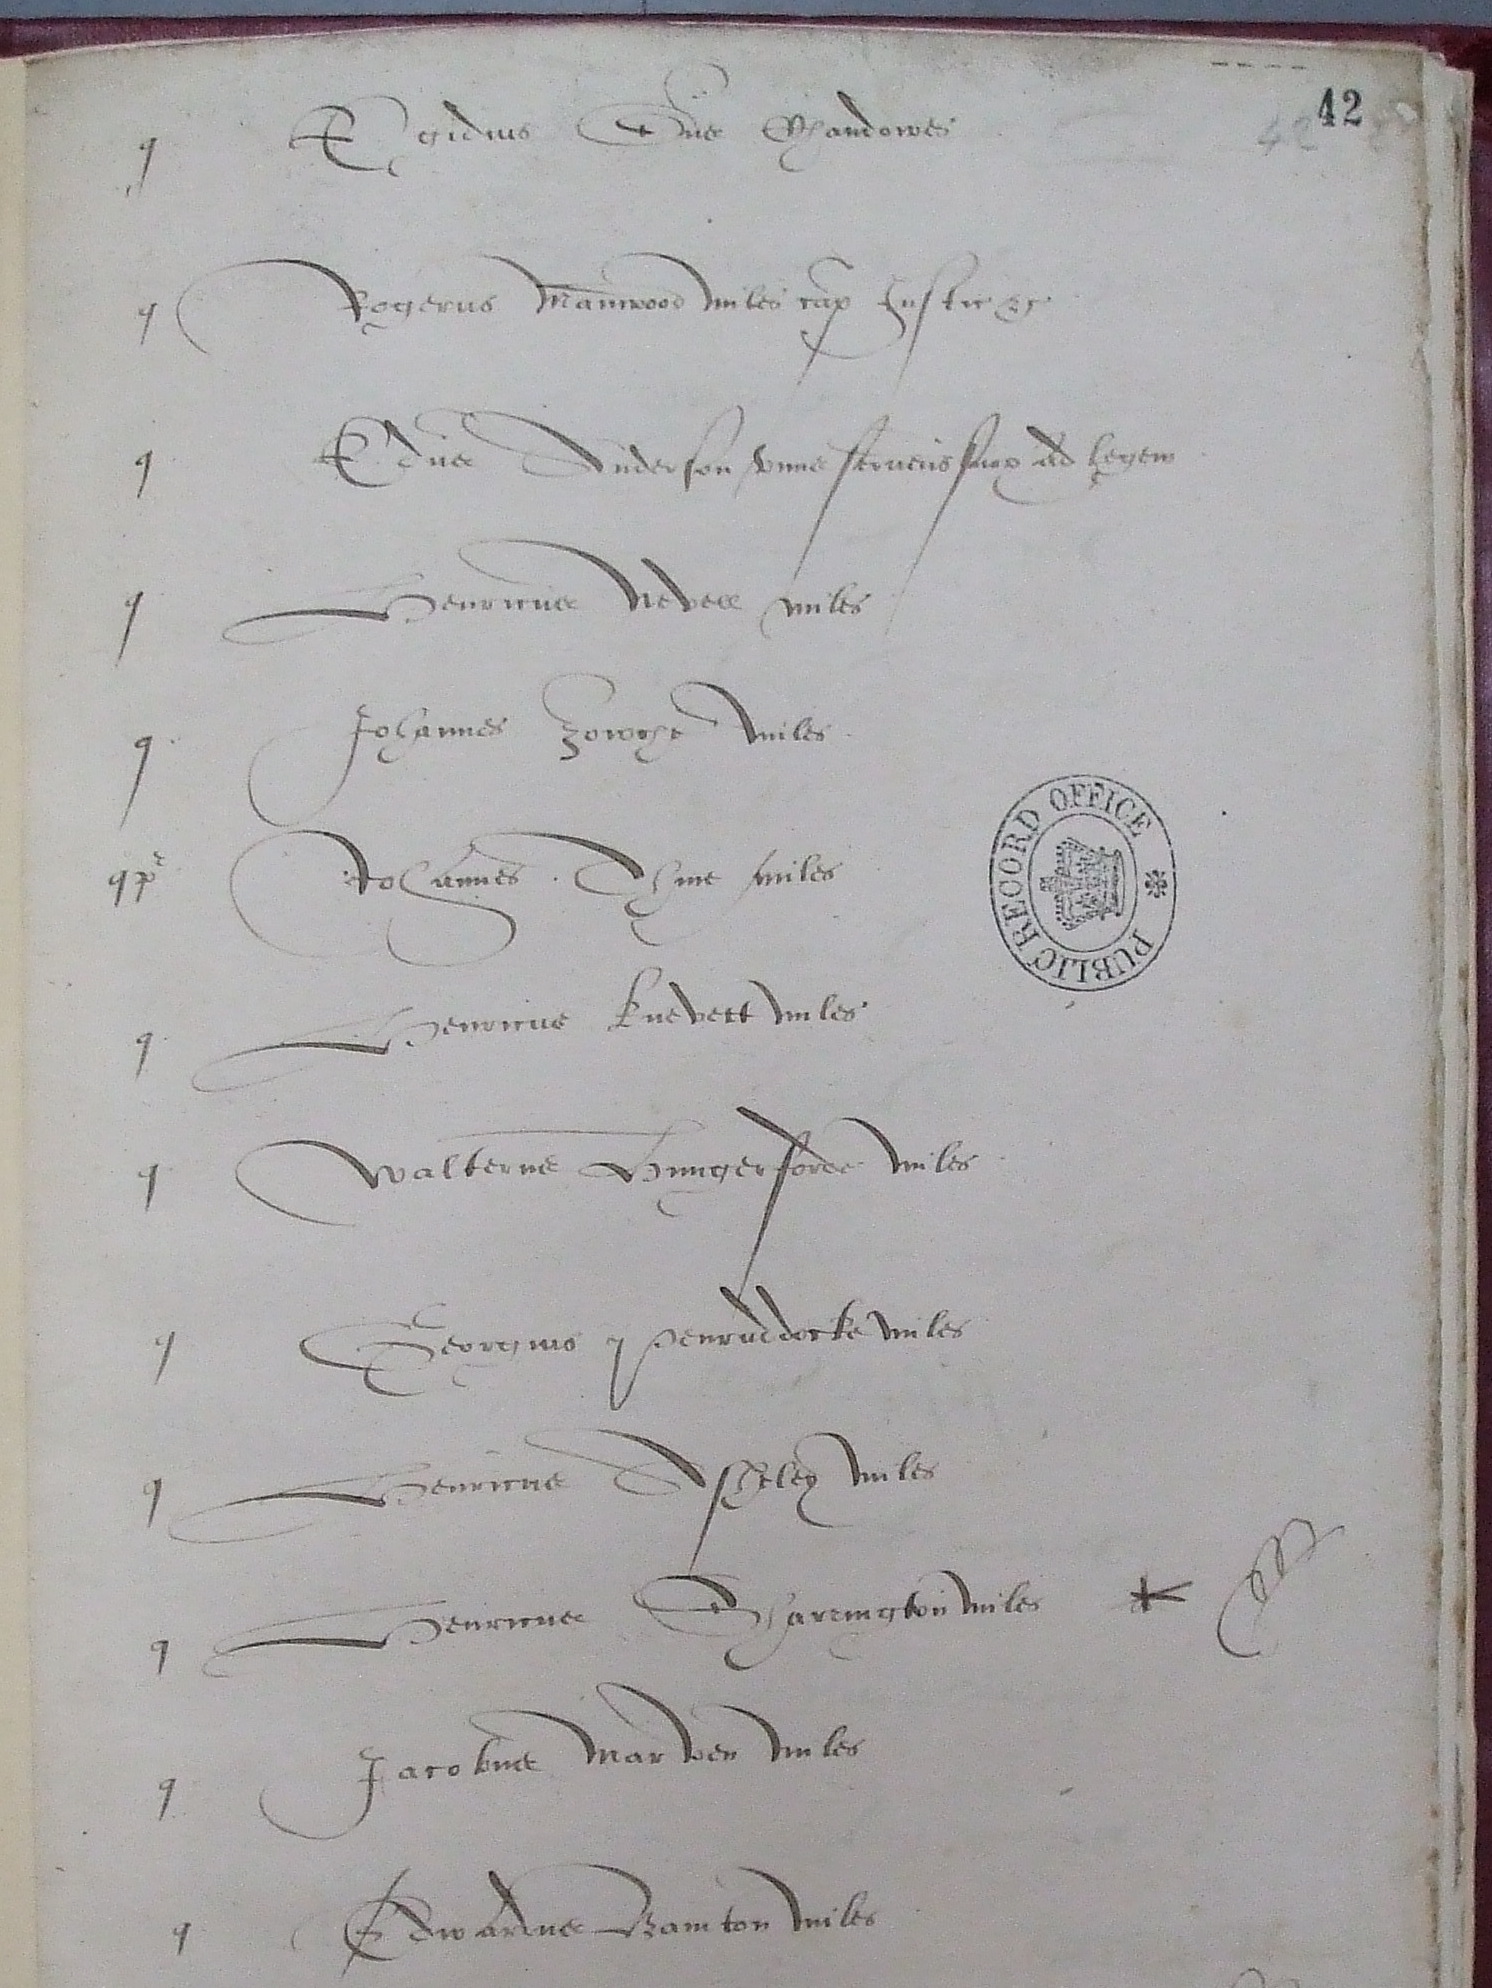 42
q Egidius Dñs Chandowes
q Rogerus Manwood miles cap Justic &c
q Edus Anderson unus servieñs ſuor ad legem
q Henricus Nevell miles
q Johannes Zowche miles
q pr Johannes Thine miles
q Henricus Knevett miles
q Walterus Hungerforde miles
q Georgius Penruddocke miles
q Henricus Asheley miles
q Henricus Sharington miles
q Jacobus Marven miles
q Edwardus Bainton miles
PUBLIC RECORD OFFICE